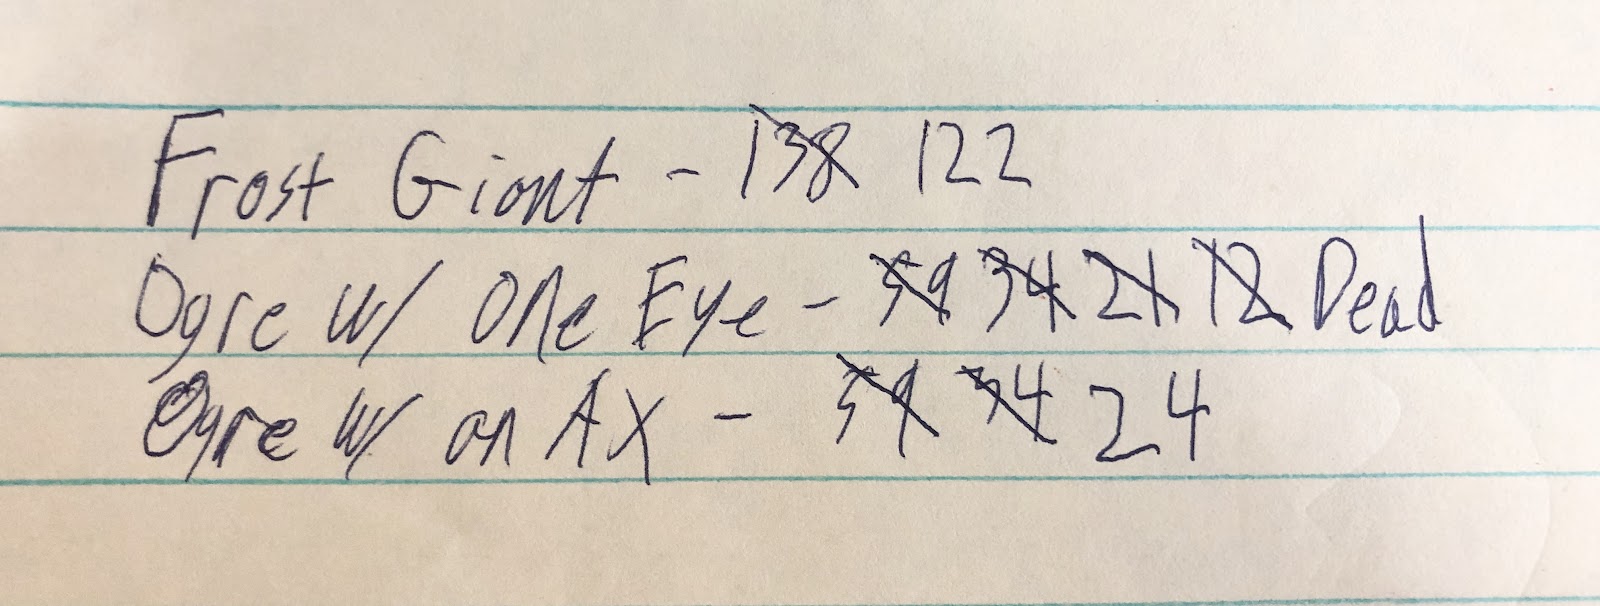 Frost Giant - 138 122
Ogre w/ One Eye - 59 34 21 12 Dead
Ogre w/ an Ax - 59 34 24